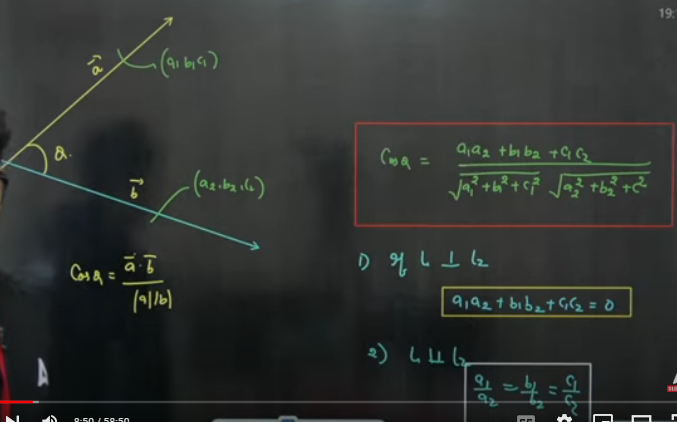 19:
a⃗
(a₁ b₁ c₁)
Q.
b⃗
(a₂, b₂, c₂)
Cos Q = a⃗·b⃗ / |a||b|
Cos Q = a₁a₂ + b₁b₂ + c₁c₂ / √a₁² + b₁² + c₁² √a₂² + b₂² + c²
1) If L ⊥ L₂
a₁a₂ + b₁b₂ + c₁c₂ = 0
2) L || L₂
a₁/a₂ = b₁/b₂ = c₁/c₂
A
8:50 / 58:50